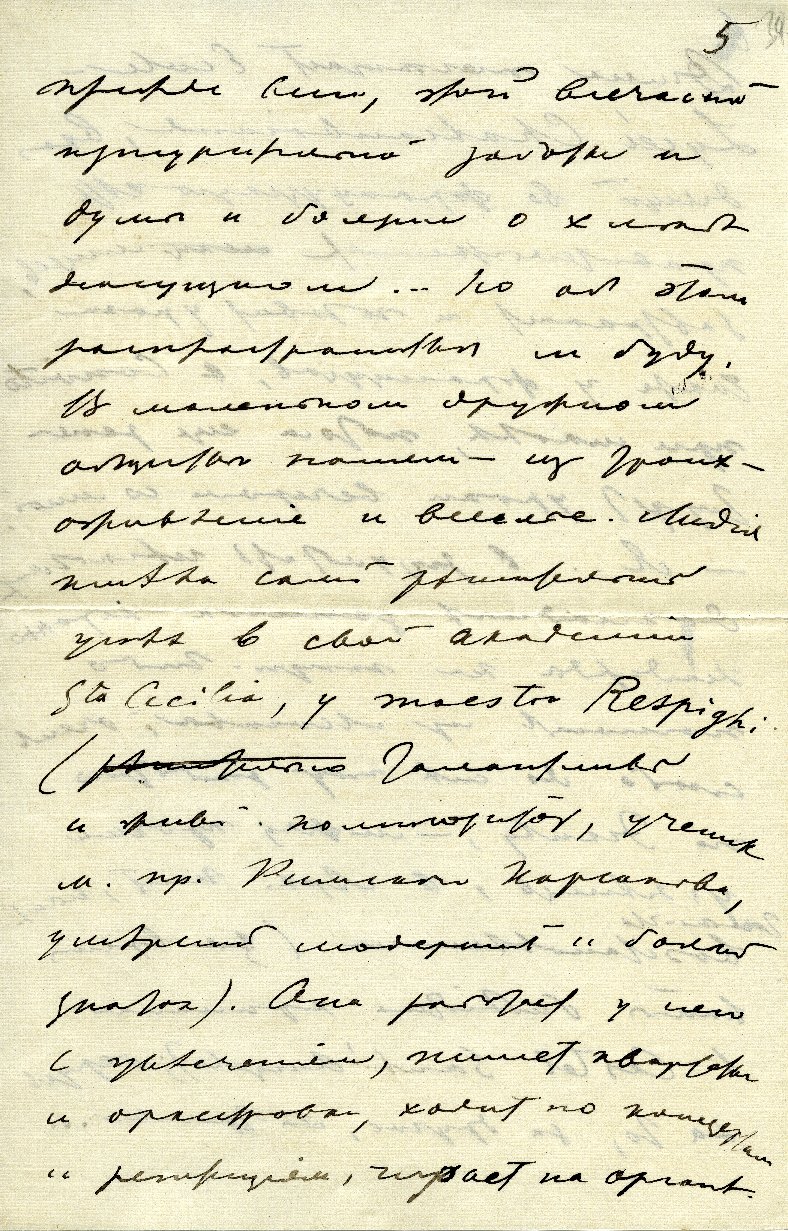 5
прежде сил, этой всечасной
принудительной заботы и
думы и болезни о хлѣбѣ
насущном... Но об этом
распространяться не буду.
В маленьком дружном
обществѣ нашем — из троих —
оживленіе и веселье. Лидія
нашла самый рѣшительный
успѣх в своей академіи
Sta Cecilia, у maestro Respighi.
(рѣшительно талантливый
и живой композитор, ученик
м. пр. Римскаго Корсакова,
умѣренный модернист и большой
знаток). Она работает у него
с увлеченіем, пишет квартеты
и оркестровки, ходит по концертам
и репетиціям, играет на органѣ.